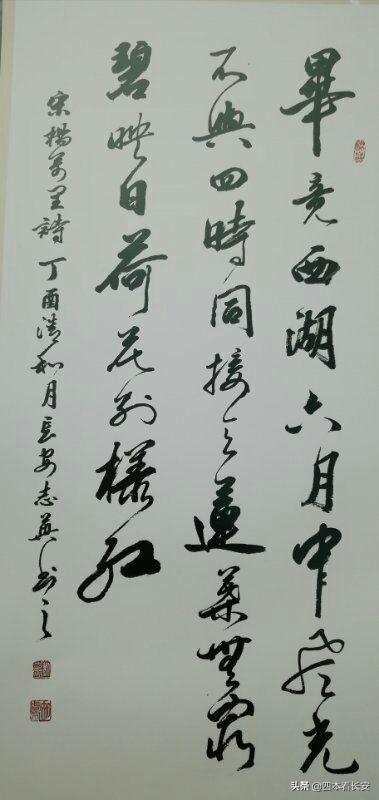 畢竟西湖六月中風光
不與四時同接天蓮葉無窮
碧映日荷花別樣紅
宋楊萬里詩丁酉清和月長安志英书之
头条 @四本看长安